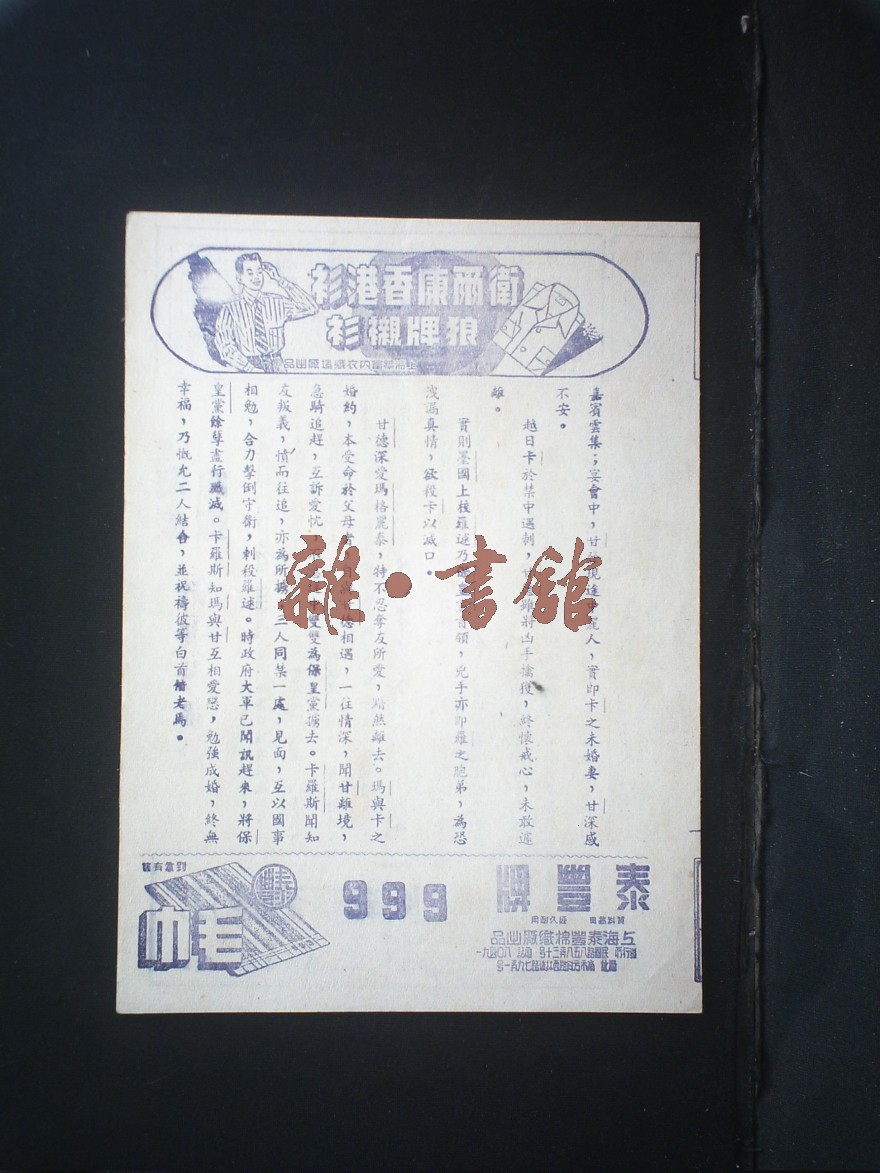 衛爾康香港衫
狼牌襯衫
嘉賓雲集；宴會中，甘 人，實即卡之未婚妻，甘深感
不安。
越日卡於禁中遇刺， 雖將凶手擒獲，終懷戒心，未敢遽
離。
實則墨國上校羅逑乃 首領，兇手亦即羅之胞弟，為恐
洩漏真情，欲殺卡以滅口。
甘德深愛瑪格麗泰，特不忍奪友所愛，黯然離去。瑪與卡之
婚約，本受命於父母 德相遇，一往情深，聞甘離境，
急騎追趕，互訴愛忱， 雙雙為保皇黨擄去。卡羅斯聞知
友叛義，憤而往追，亦為所擄，三人同禁一處，見面，互以國事
相勉，合力擊倒守衛，刺殺羅逑。時政府大軍已聞訊趕來，將保
皇黨餘孽盡行 滅。卡羅斯知瑪與甘互相愛戀，勉強成婚，終無
幸福，乃慨允二人結合，並祝禱彼等白首偕老焉。
雜·書館
泰豐牌
999
經久耐用
上海泰豐棉織廠出品
到處有售
泰豐
毛巾